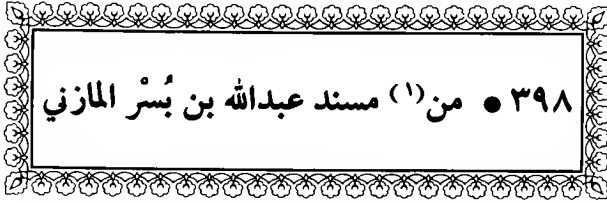 ٣٩٨ ● من(١) مسند عبدالله بن بُسْر المازني